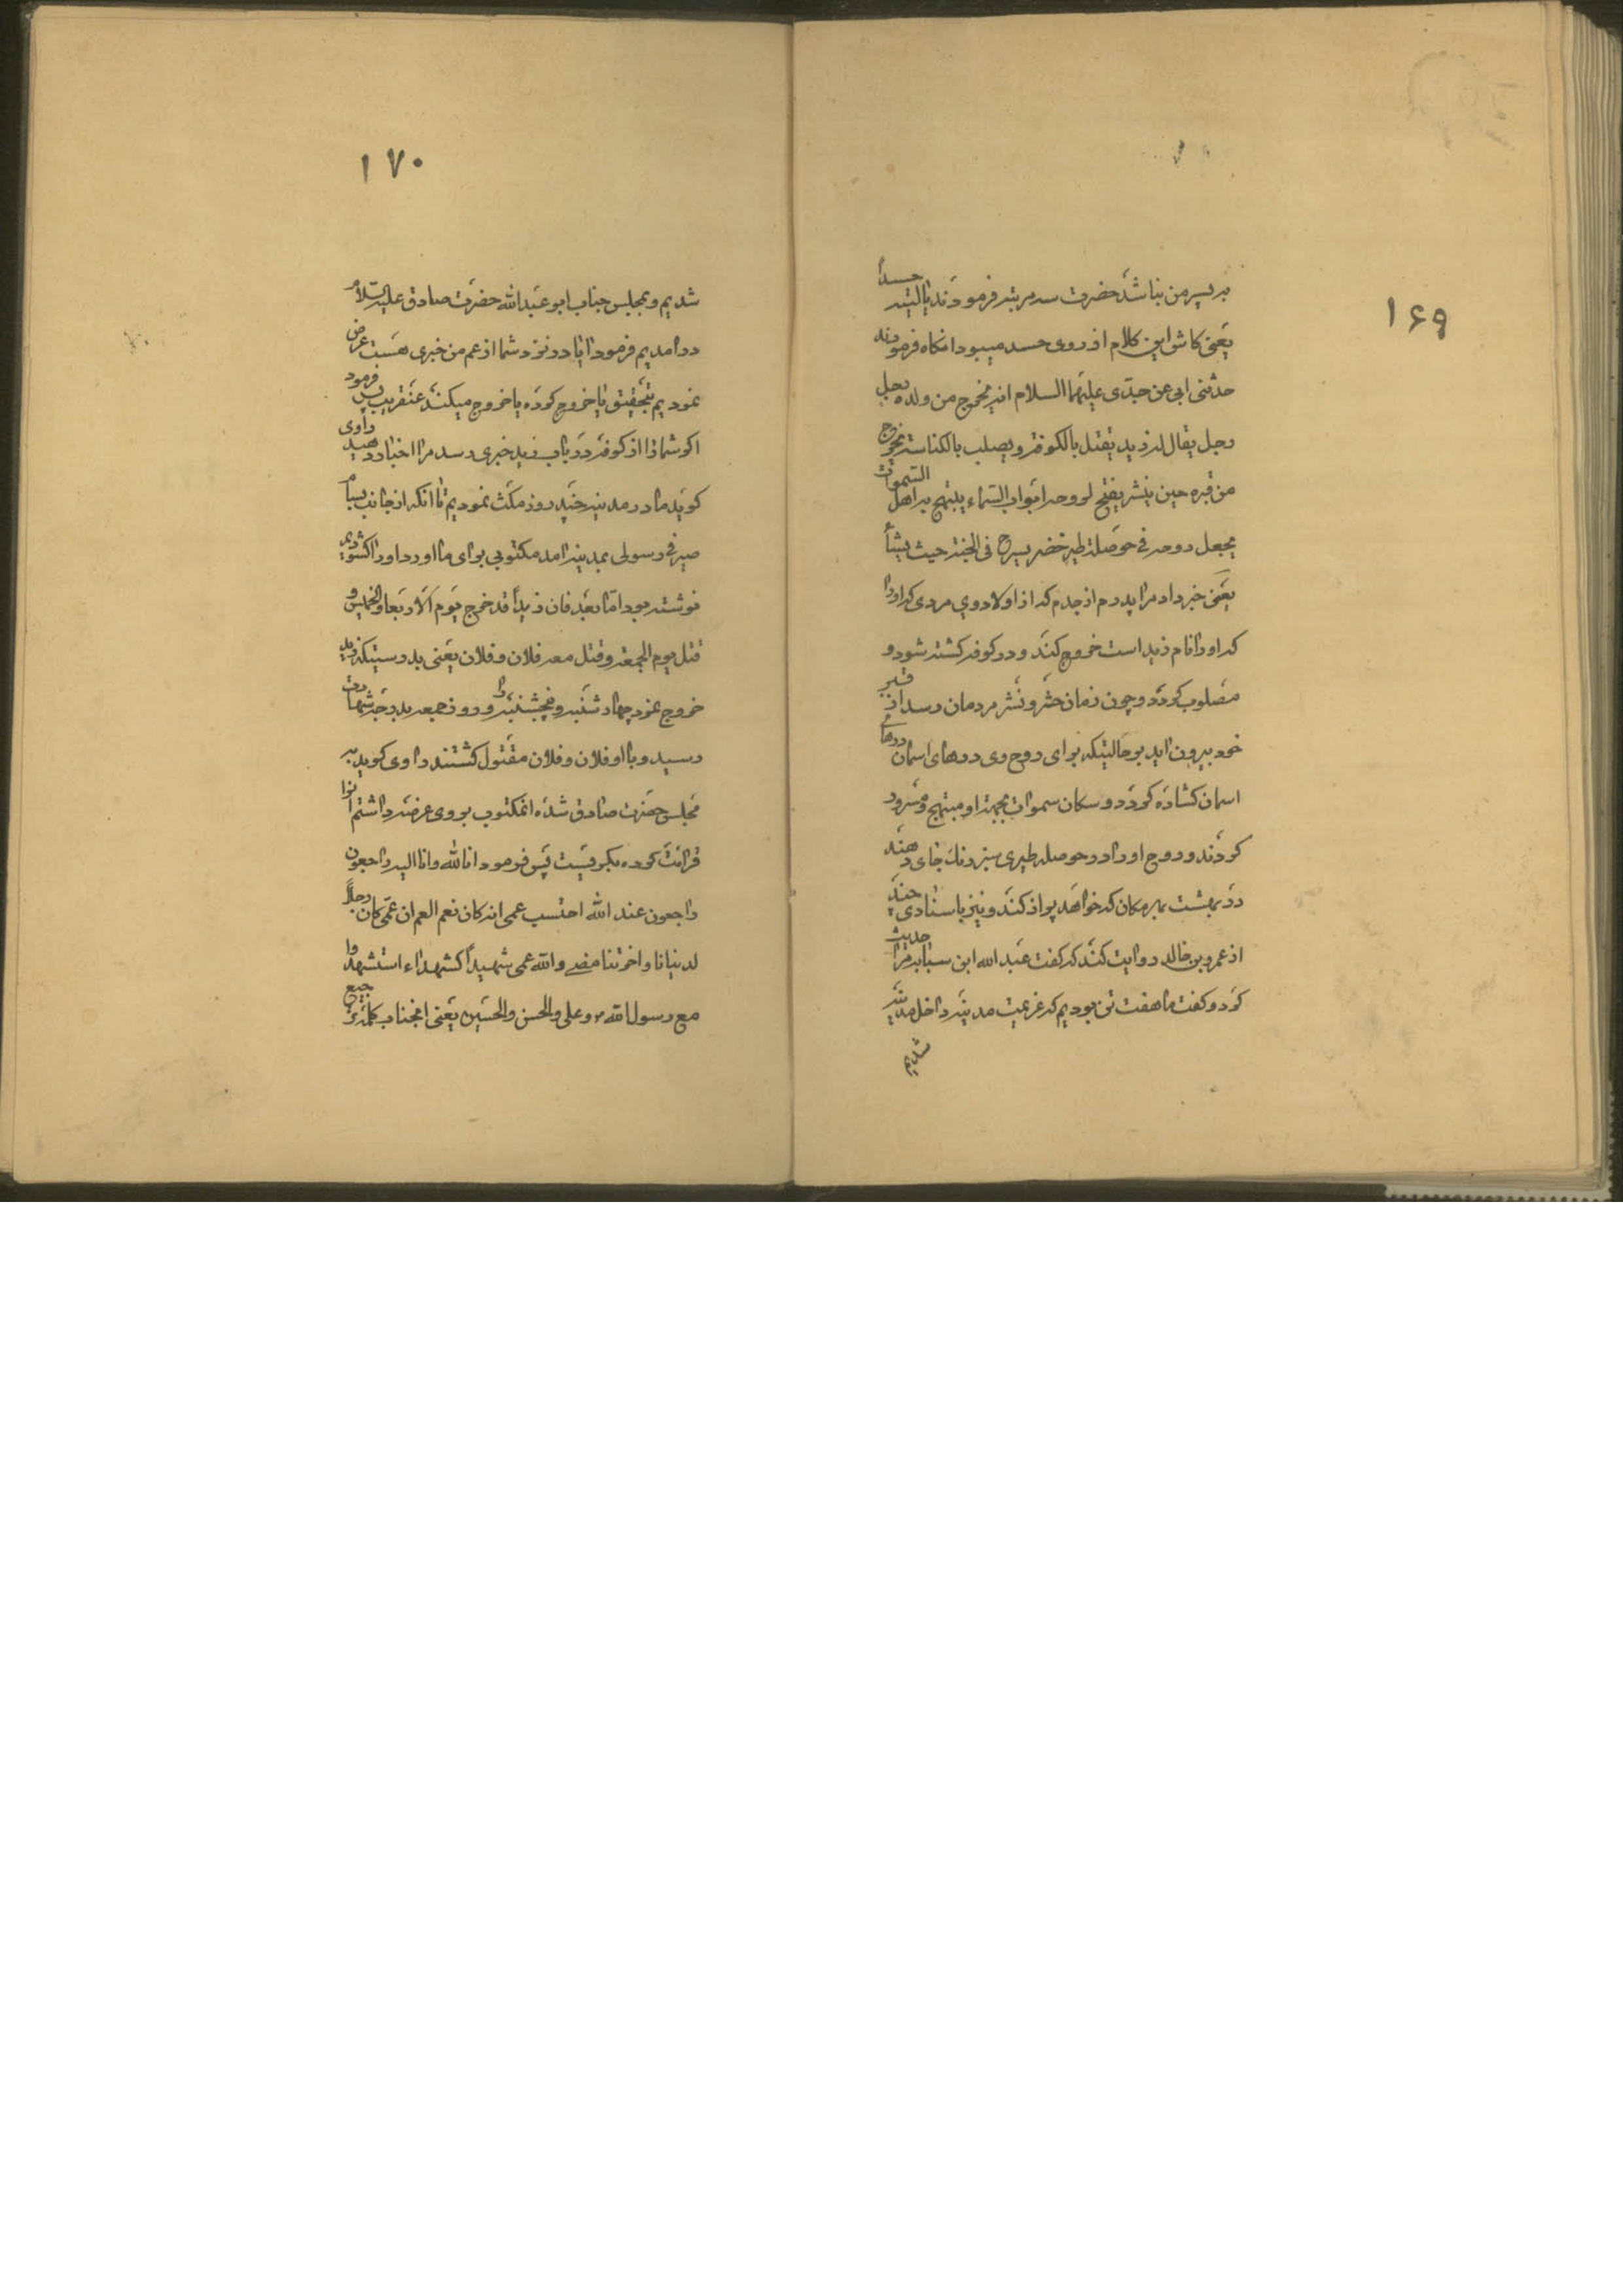 ۱۶۹
بر پسر من نباشد حضرت سه مرتبه فرمودند یا لیته حسداً
یعنی کاش این کلام از روی حسد میبود انکاه فرمودند
حدثنی ابی عن جدی علیهما السلام انه یخرج من ولده رجل
رجل یقال له زید یقتل بالکوفه و یصلب بالکناسه یخرج
من قبره حین ینشر یفتح لروحه ابواب السماء یبتهج به اهل السموات
یجعل روحه فی حوصلة طیر خضر یسرح فی الجنة حیث یشأ
یعنی خبر داد مرا پدرم از جدم که از اولاد وی مردی که او را
که او را نام زید است خروج کند و در کوفه کشته شود و
مصلوب کردد و چون زمان حشر و نشر مردمان رسد از قبر
خود بیرون اید بر حالتیکه برای روح وی درهای اسمان درهای
اسمان کشاده کردد و سکان سموات بجهة او مبتهج و مسرور
کردند و روح او را در حوصله طیری سبز رنك جای دهند
در بهشت بهر مکان که خواهد پرواز کند و نیز باسنادی چند
از عمرو بن خالد روایت کند که کفت عبد الله ابن سبابه مرا حدیث
کرد و کفت ما هفت تن بودیم که غزیمت مدینه داخل مدینه
شدیم
۱۷۰
شدیم و بمجلس جناب ابو عبد الله حضرت صادق علیه السلام
درامدیم فرمود ایا در نزد شما از عم من خبری هست عرض
نمودیم بتحقیق یا خروج کرده یا خروج میکند عنقریب پس فرمود
اکر شما را از کوفه در باب زید خبری رسد مرا اخبار دهید راوی
کوید ما در مدینه چند روز مکث نمودیم تا انکه از جانب بسام
صیرفی رسولی بمدینه امد مکتوبی برای ما اورد او را کشودیم
نوشته بود اما بعد فان زیداً قد خرج یوم الاربعا و الخمیس و
قتل یوم الجمعة و قتل معه فلان و فلان یعنی بدرستیکه زید
خروج نمود چهارشنبه و پنجشنبه را و روز جمعه بدرجه شهادت
رسید و با او فلان و فلان مقتول کشتند راوی کوید به
مجلس حضرت صادق شده انمکتوب بروی عرضه داشتم انرا
قرائت کرده بکریست پس فرمود انا لله و انا الیه راجعون
راجعون عند الله احتسب عمی انه کان نعم العم ان عمی کان رجلاً
لدنیانا و اخرتنا مضی و الله عمی شهیداً کشهداء استشهدوا
مع رسول الله و علی و الحسن و الحسین یعنی انجناب کلمه جمیع